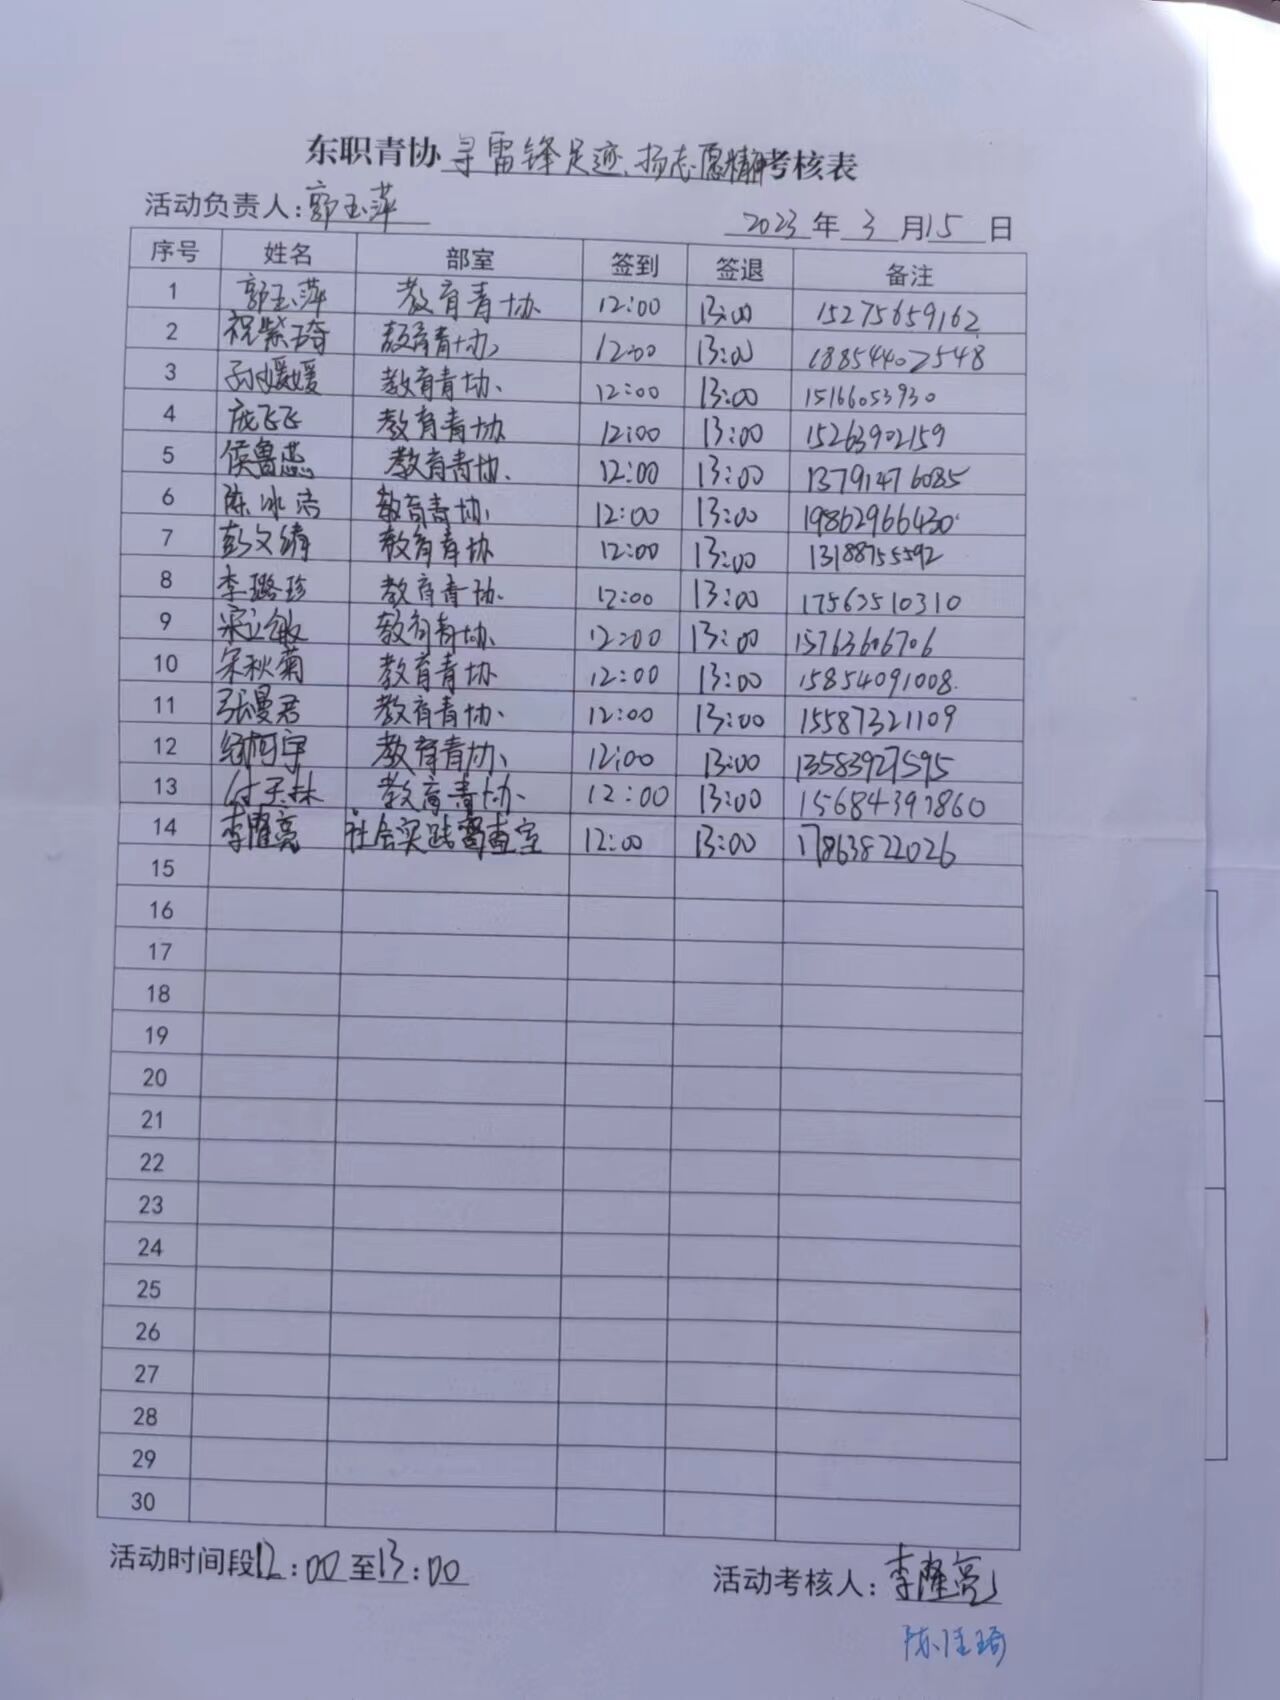 东职青协寻雷锋足迹、扬志愿精神考核表
活动负责人:郭玉萍 2023年3月15日
序号 姓名 部室 签到 签退 备注
1 郭玉萍 教育青协 12:00 13:00 15275659162
2 祝紫琦 教育青协 12:00 13:00 18854402548
3 孙媛媛 教育青协 12:00 13:00 15166053930
4 庞飞飞 教育青协 12:00 13:00 15263902159
5 侯鲁燕 教育青协 12:00 13:00 13791476085
6 陈冰洁 教育青协 12:00 13:00 19862966430
7 彭文婧 教育青协 12:00 13:00 13188755592
8 李璐珍 教育青协 12:00 13:00 17562510310
9 宋立敏 教育青协 12:00 13:00 15763606706
10 宋秋菊 教育青协 12:00 13:00 15854091008
11 张曼君 教育青协 12:00 13:00 15587321109
12 柯宇 教育青协 12:00 13:00 13583927595
13 付天林 教育青协 12:00 13:00 15684397860
14 李隆亮 社会实践室 12:00 13:00 17863822026
15
16
17
18
19
20
21
22
23
24
25
26
27
28
29
30
活动时间段12:00至13:00 活动考核人:李隆亮
陈佳琦